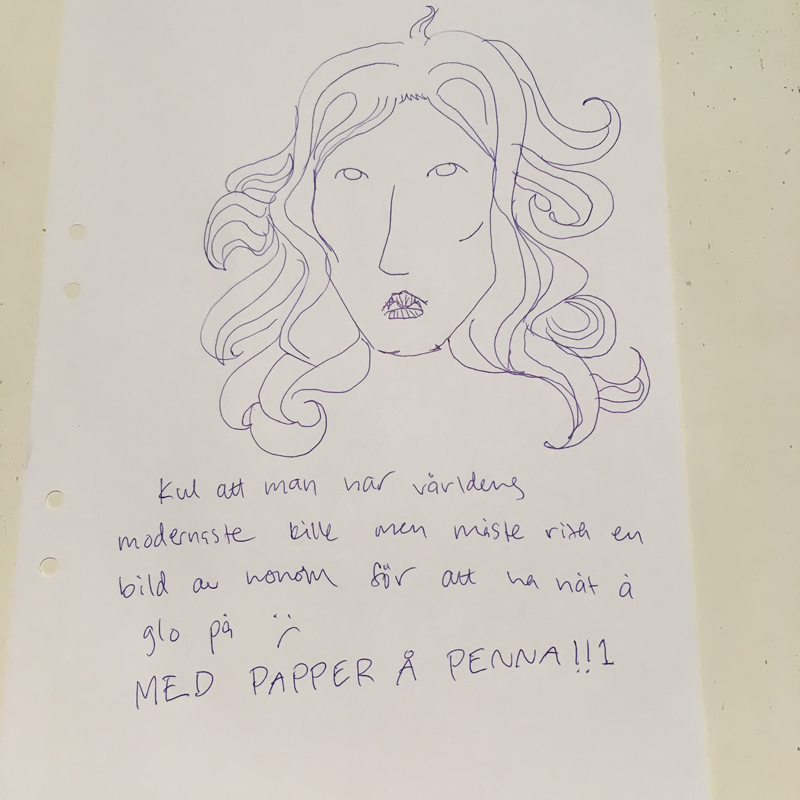 Kul att man har världens
modernaste kille men måste rita en
bild av honom för att ha nåt å
glo på :(
MED PAPPER Å PENNA!!1